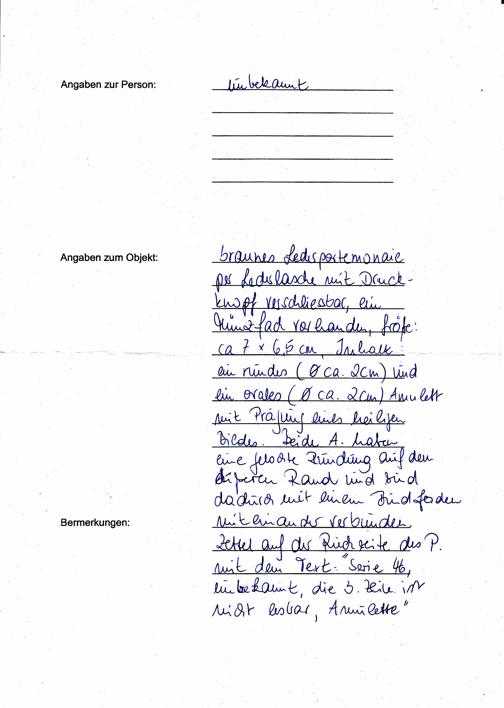 Angaben zur Person: unbekannt
Angaben zum Objekt: braunes Lederportemonaie
per Lederlasche mit Druck-
knopf verschliesbar, ein
Münzfach vorhanden, Größe:
ca 7 x 6,5 cm, Inhalt:
ein rundes (Ø ca. 2cm) und
ein ovales (Ø ca. 2cm) Amulett
mit Prägung eines heiligen
Bildes. Beide A. haben
eine gelochte Rundung auf den
äußeren Rand und sind
dadurch mit einem Bindfaden
Bermerkungen: miteinander verbunden
Zettel auf der Rückseite des P.
mit dem Text: "Serie 46,
unbekannt, die 3. Zeile ist
nicht lesbar, Amulette"